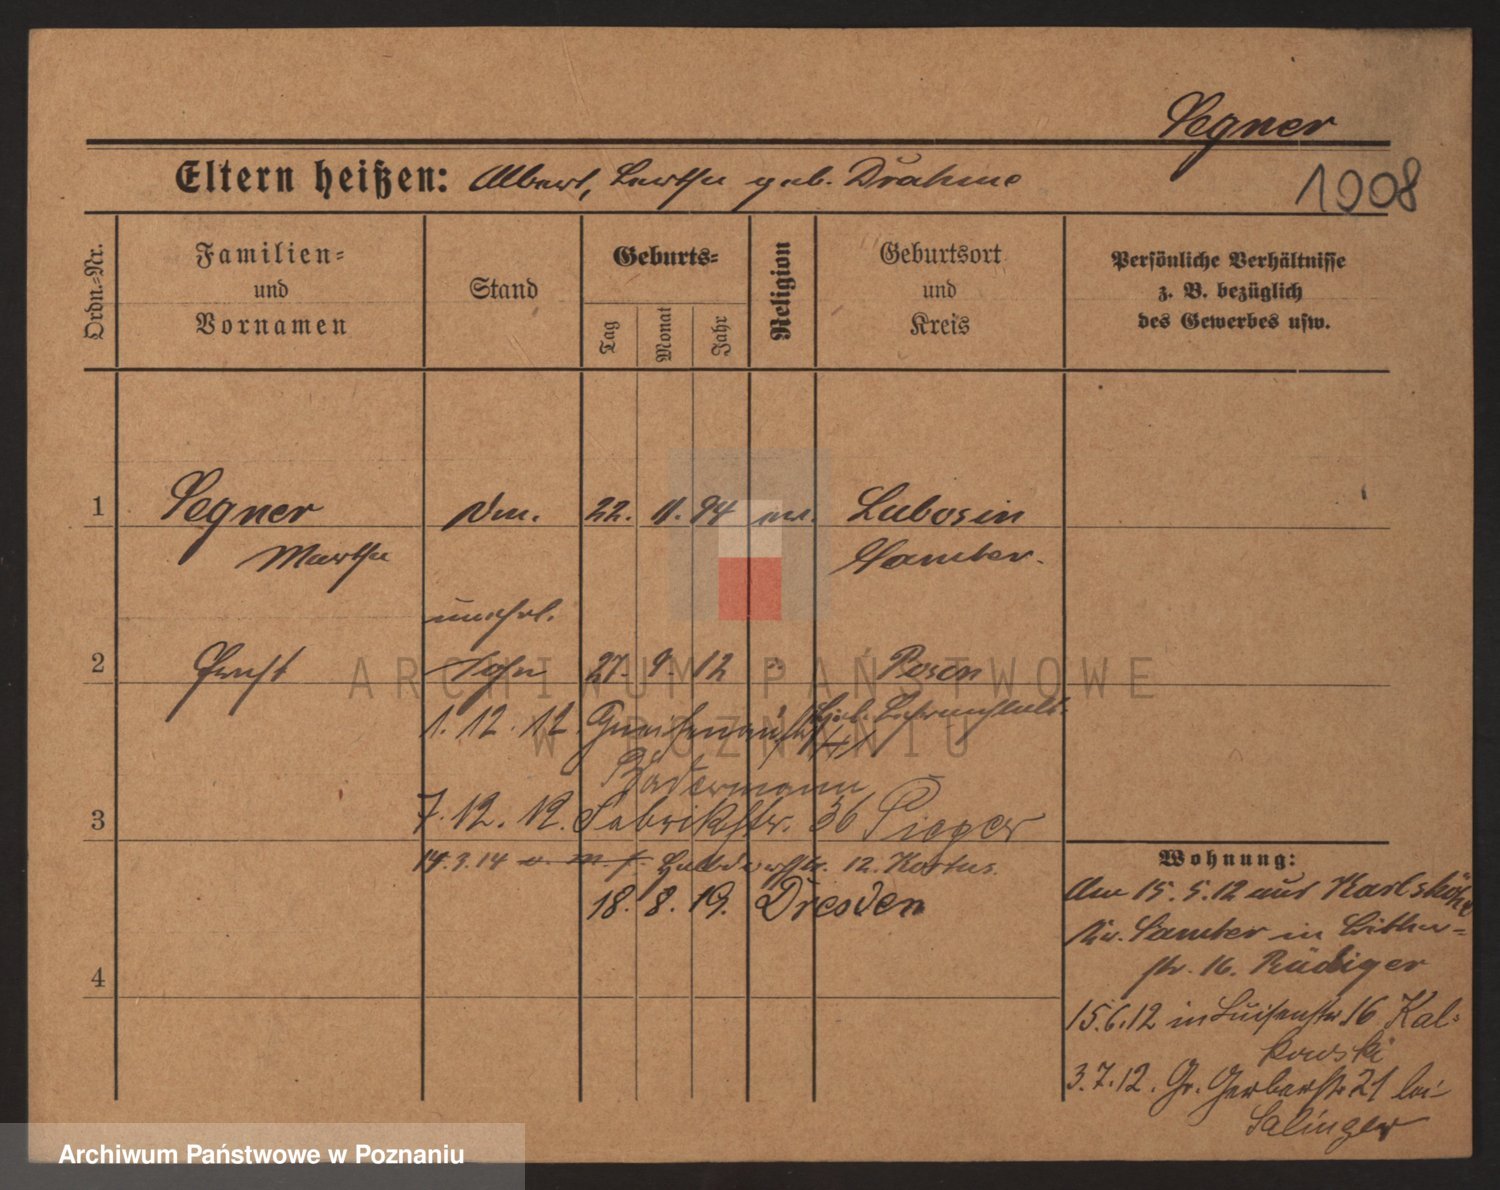 Segner
Eltern heißen: Albert, Bertha geb. Drahme
1908
Ordn.-Nr.
Familien- und Vornamen
Stand
Geburts-
Tag
Monat
Jahr
Religion
Geburtsort und Kreis
Persönliche Verhältnisse
z. B. bezüglich
des Gewerbes usw.
1 Segner 22. 11. 94 ev. Lubosin
Martha Samter.
unehel.
2 Ernst Sohn 27. 9. 12 " Posen
1. 12. 12. Gneisenaustr.
Badermann
3 7. 12. 12. Fabrikstr. 36 Pieger
14.3.14 Halbdorfstr. 12. Kortus.
18. 8. 19. Dresden
4
Wohnung:
Am 15.5.12 aus Karlshöhe
Kr. Samter in Bitter-
str. 16. Rüdiger
15.6.12 in Luisenstr 16 Kal-
kowski
3.7.12. Gr. Gerberstr 21 bei
Salinger
ARCHIWUM PAŃSTWOWE
W POZNANIU
Archiwum Państwowe w Poznaniu